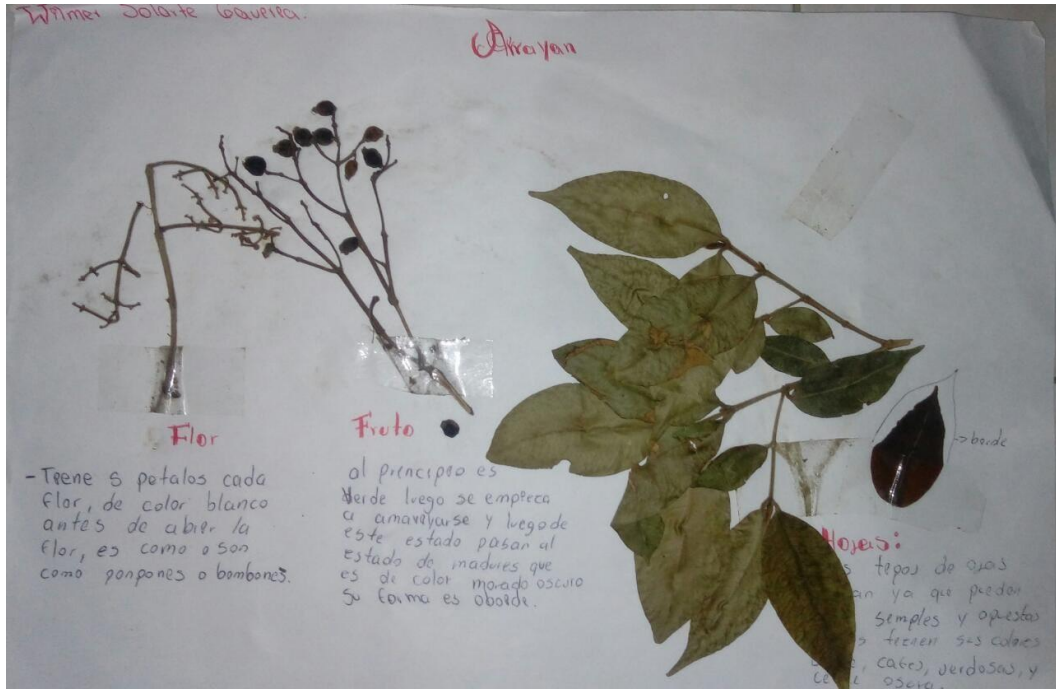 Wilmer Solarte
Arrayan
Flor
- Teene 5 petalos cada
flor, de color blanco
antes de abrir la
flor, es como o son
como ponpones o bombones.
Fruto
al prencipio es
verde luego se empieca
a amarellarse y luego de
este estado pasan al
estado de madures que
es de color morado oscuro
su forma es oborde.
-> borde
Hojas:
tepos de ojas
ya que pueden
semples y opuestas
teenen sus colores
cafes, verdosas, y